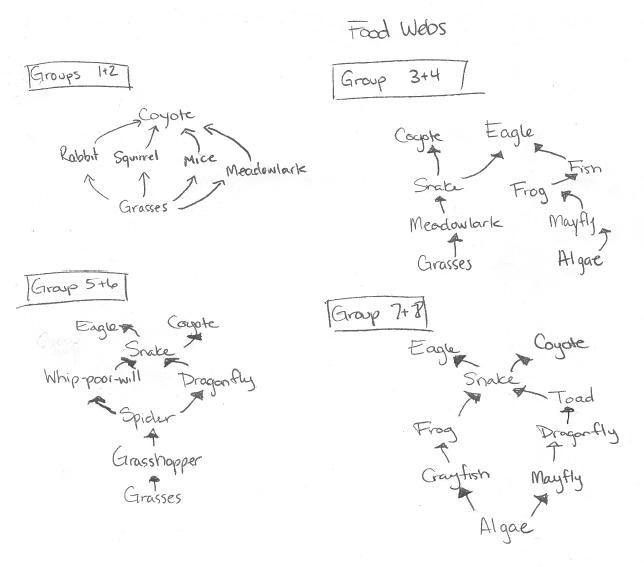 Food Webs
Groups 1+2
Coyote
Rabbit Squirrel Mice Meadowlark
Grasses
Group 3+4
Coyote Eagle
Snake Frog Fish
Meadowlark Mayfly
Grasses Algae
Group 5+6
Eagle Coyote
Snake
Whip-poor-will Dragonfly
Spider
Grasshopper
Grasses
Group 7+8
Eagle Coyote
Snake
Toad
Frog Dragonfly
Crayfish Mayfly
Algae